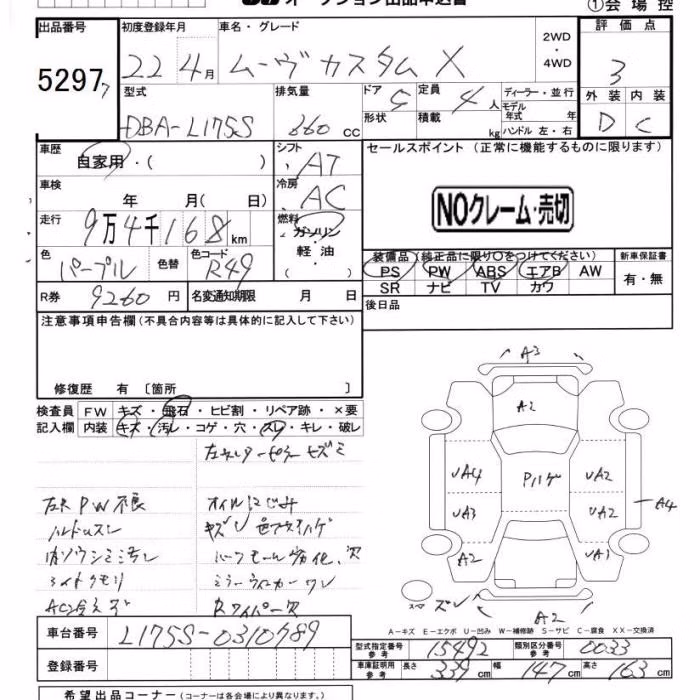 ①会場控
出品番号 初度登録年月 車名・グレード 評価点
5297 22 4月 ムーヴカスタム X 2WD・4WD 3
型式 排気量 ドア 定員 ディーラー・並行 外装 内装
DBA-L175S 660 cc 5 4人 モデル年式 年 D C
形状 積載 kg ハンドル 左・右
車歴 シフト セールスポイント (正常に機能するものに限ります)
自家用・( ) AT
車検 年 月( 日) 冷房 AC NOクレーム・売切
走行 9万4千168km 燃料 ガソリン・軽油・( )
色 パープル 色替 色コード R49
装備品 (純正品に限り〇をつけてください) 新車保証書
PS PW ABS エアB AW 有・無
SR ナビ TV カワ
R券 9260円 名変通知期限 月 日 後日品
注意事項申告欄 (不具合内容等は具体的に記入して下さい)
修復歴 有 〔箇所 〕
検査員 FW キズ・飛石・ヒビ割・リペア跡・×要
記入欄 内装 キズ・汚レ・コゲ・穴・スレ・キレ・破レ
左右PW不良 オイルにじみ
ハンドルスレ
内ソウシミ汚レ
ライトクモリ ミラーウィンカーワレ
AC冷えず Rワイパー欠
A3
A2
UA4 Pハゲ UA2
UA3 UA2 A4
A2 UA1
ズレ A2
A-キズ E-エクボ U-凹み W-補修跡 S-サビ C-腐食 XX-交換済
車台番号 L175S-0310789
型式指定番号 参考 15492 類別区分番号 参考 0033
車庫証明用 参考 長さ 339cm 幅 147cm 高さ 163cm
登録番号
希望出品コーナー (コーナーは各会場により異なります。)